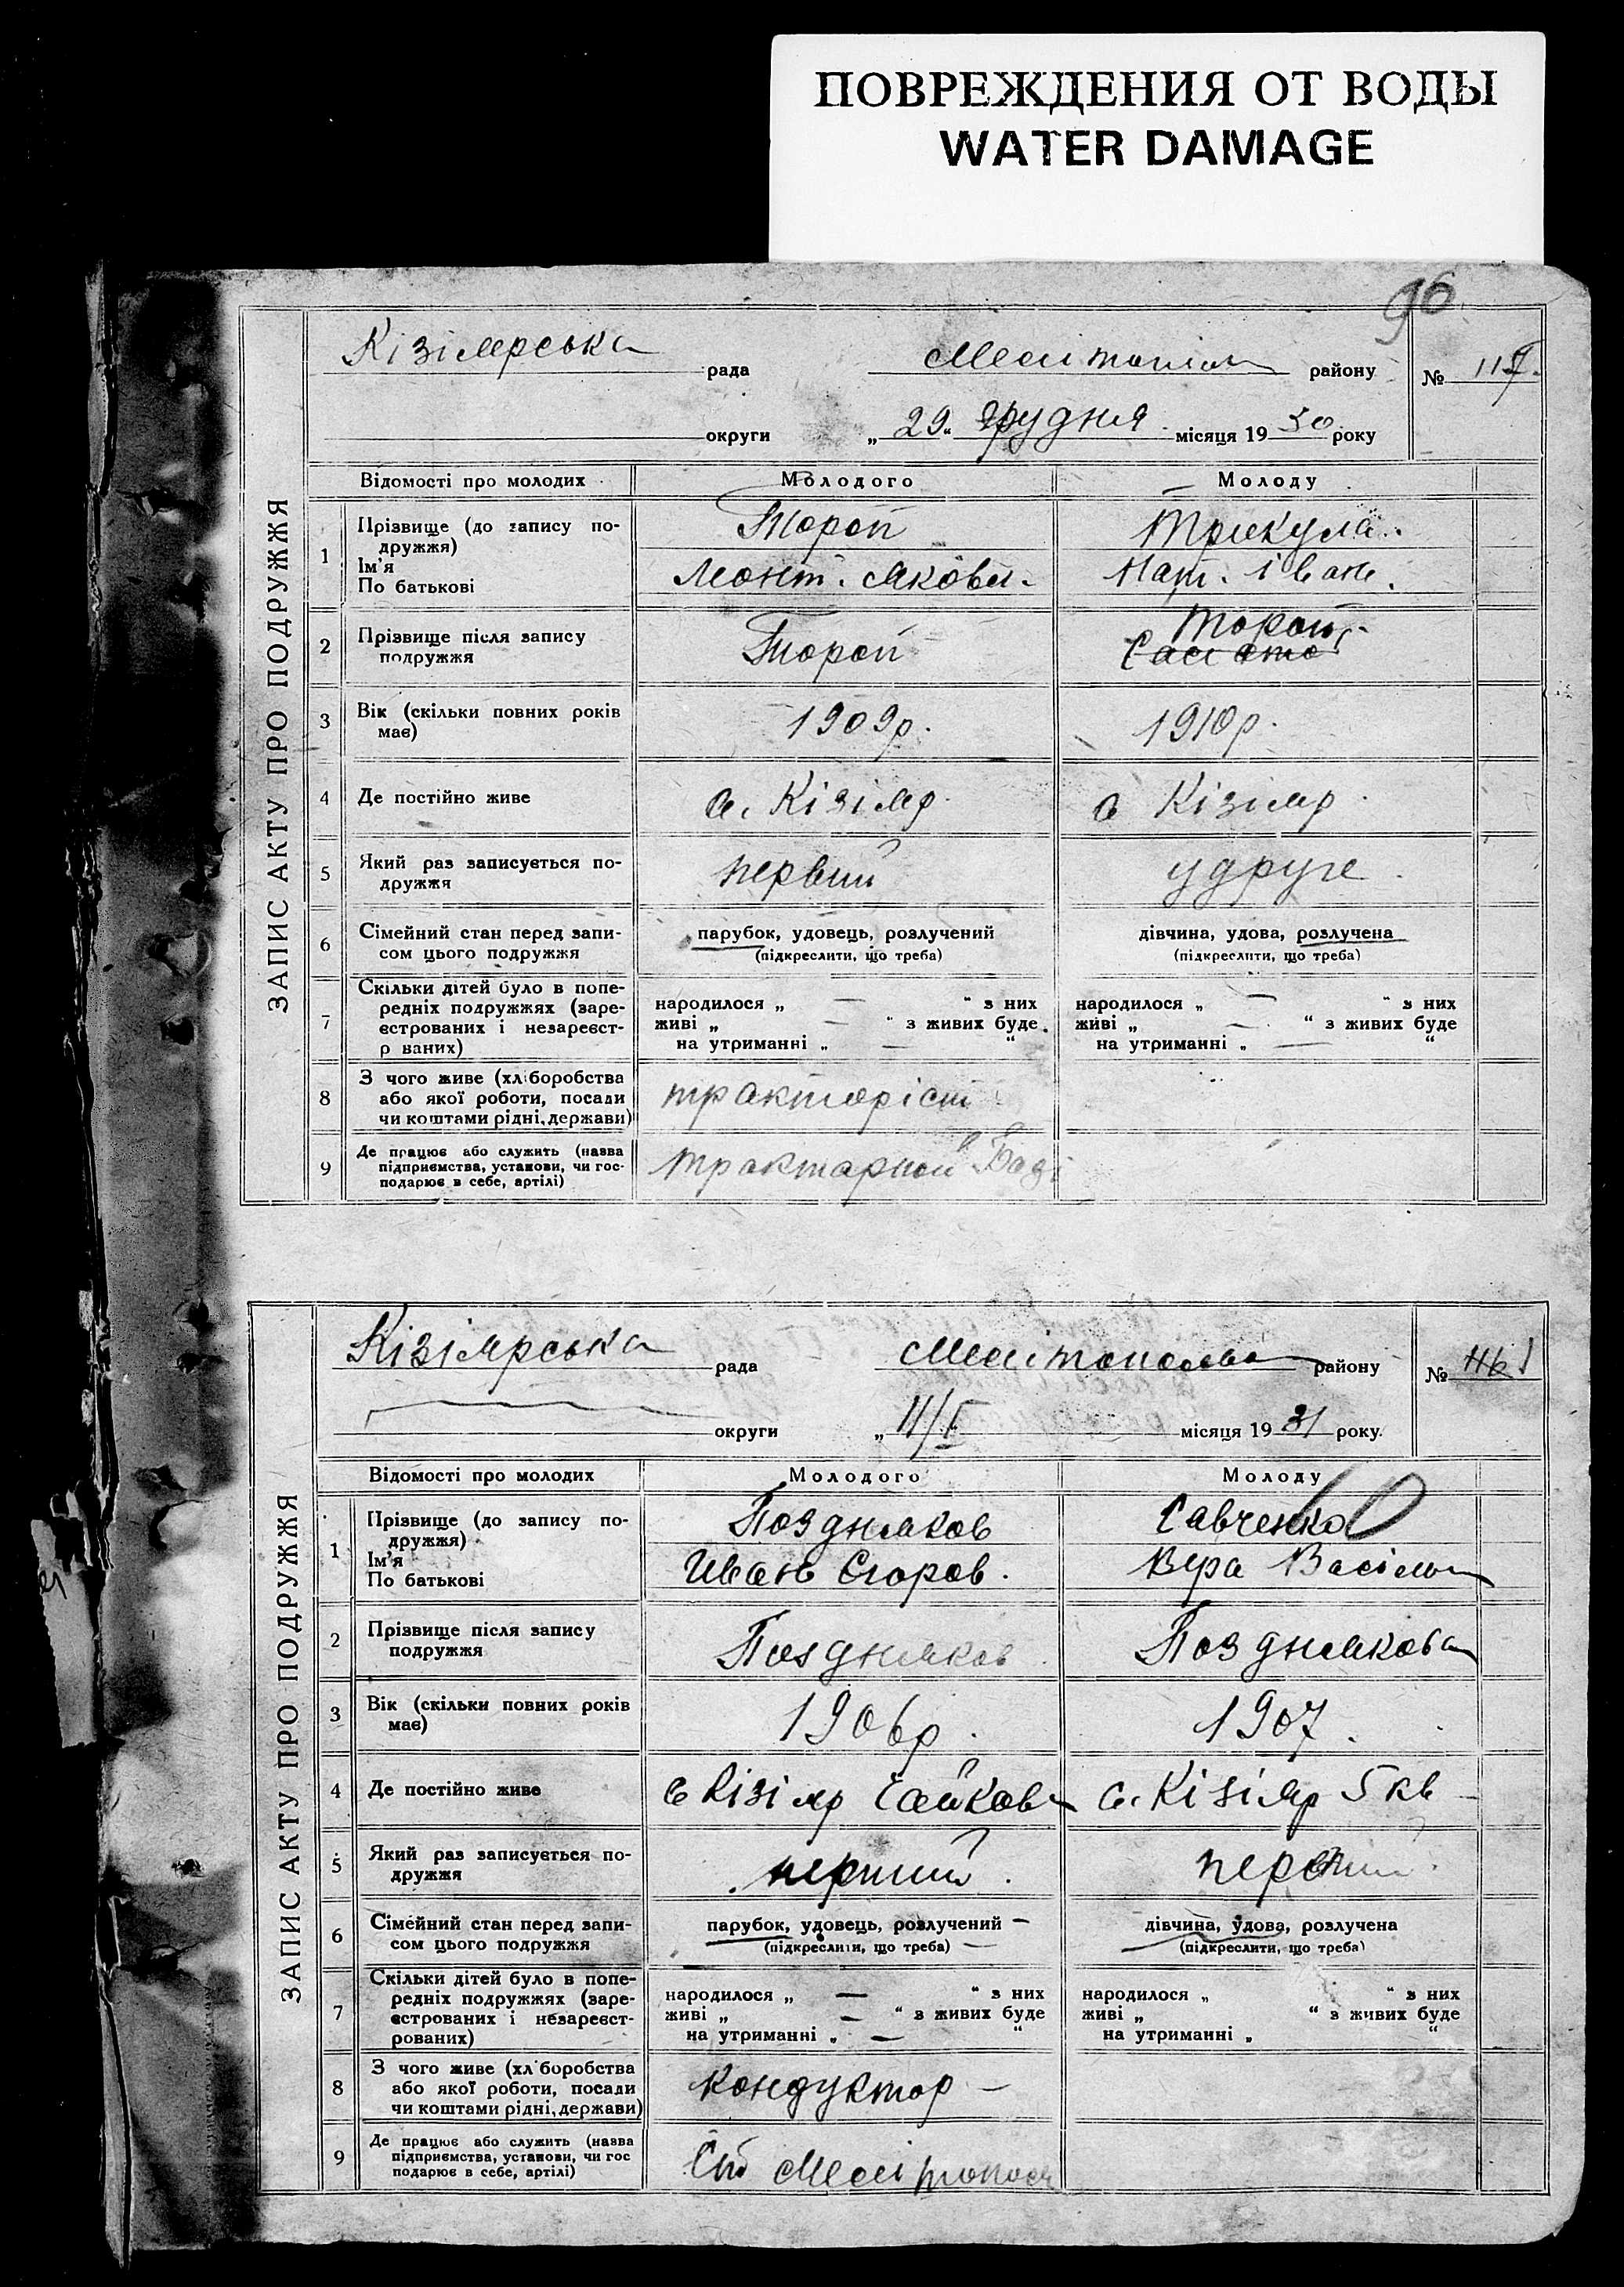 ПОВРЕЖДЕНИЯ ОТ ВОДЫ
WATER DAMAGE
96
ЗАПИС АКТУ ПРО ПОДРУЖЖЯ
Кізіярська рада района району №
округи „29“ грудня місяця 1930 року
Відомості про молодих Молодого Молоду
1 Прізвище (до запису по- Тороп Трикула
дружжя)
Ім'я Леонт. Якова. Нат. Іван.
По батькові
2 Прізвище після запису Тороп Тороп
подружжя
3 Вік (скільки повних років 1909р. 1910р.
має)
4 Де постійно живе с. Кізіяр. с Кізіяр.
5 Який раз записується по- первий удруге
дружжя
6 Сімейний стан перед запи- парубок, удовець, розлучений дівчина, удова, розлучена
сом цього подружжя (підкреслити, що треба) (підкреслити, що треба)
7 Скільки дітей було в попе-
редніх подружжях (заре- народилося „ — “ з них народилося „ — “ з них
єстрованих і незареєст- живі „ — “ з живих буде живі „ — “ з живих буде
р ваних) на утриманні „ — “ на утриманні „ — “
8 З чого живе (хліборобства
або якої роботи, посади тракторіст
чи коштами рідні, держави)
9 Де працює або служить (назва
підприємства, установи, чи гос-
подарює в себе, артілі)
ЗАПИС АКТУ ПРО ПОДРУЖЖЯ
Кізіярська рада району №
округи „11/I місяця 1931 року.
Відомості про молодих Молодого Молоду
1 Прізвище (до запису по- Поздняков Савченко
дружжя)
Ім'я Иван Єгоров. Віра
По батькові
2 Прізвище після запису Поздняков Позднякова
подружжя
3 Вік (скільки повних років 1906р. 1907.
має)
4 Де постійно живе с Кізіяр с. Кізіяр 5 кв
5 Який раз записується по- перший
дружжя
6 Сімейний стан перед запи- парубок, удовець, розлучений — дівчина, удова, розлучена
сом цього подружжя (підкреслити, що треба) — (підкреслити, що треба)
7 Скільки дітей було в попе-
редніх подружжях (заре- народилося „ — “ з них народилося „ “ з них
єстрованих і незареєст- живі „ — “ з живих буде живі „ “ з живих буде
рованих) на утриманні „ — “ на утриманні „ “
8 З чого живе (хліборобства
або якої роботи, посади кондуктор —
чи коштами рідні, держави)
9 Де працює або служить (назва
підприємства, установи, чи гос
подарює в себе, артілі)